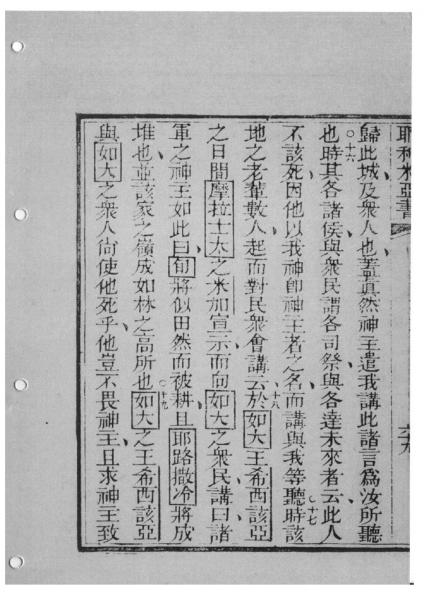 耶利米亞書
歸此城及衆人也蓋眞然神主遣我講此諸言爲汝所聽
也○十六時其各諸侯與衆民謂各司祭與各達未來者云此人
不該死因他以我神卽神主者之名而講與我等聽○十七時該
地之老輩數人起而對民衆會講云○十八於如大王希西該亞
之日間摩拉士太之米加宣示而向如大之衆民講曰諸
軍之神主如此曰旬將似田然而被耕且耶路撒冷將成
堆也並該家之嶺成如林之高所也○十九如大之王希西該亞
與如大之衆人尙使他死乎他豈不畏神主且求神主致